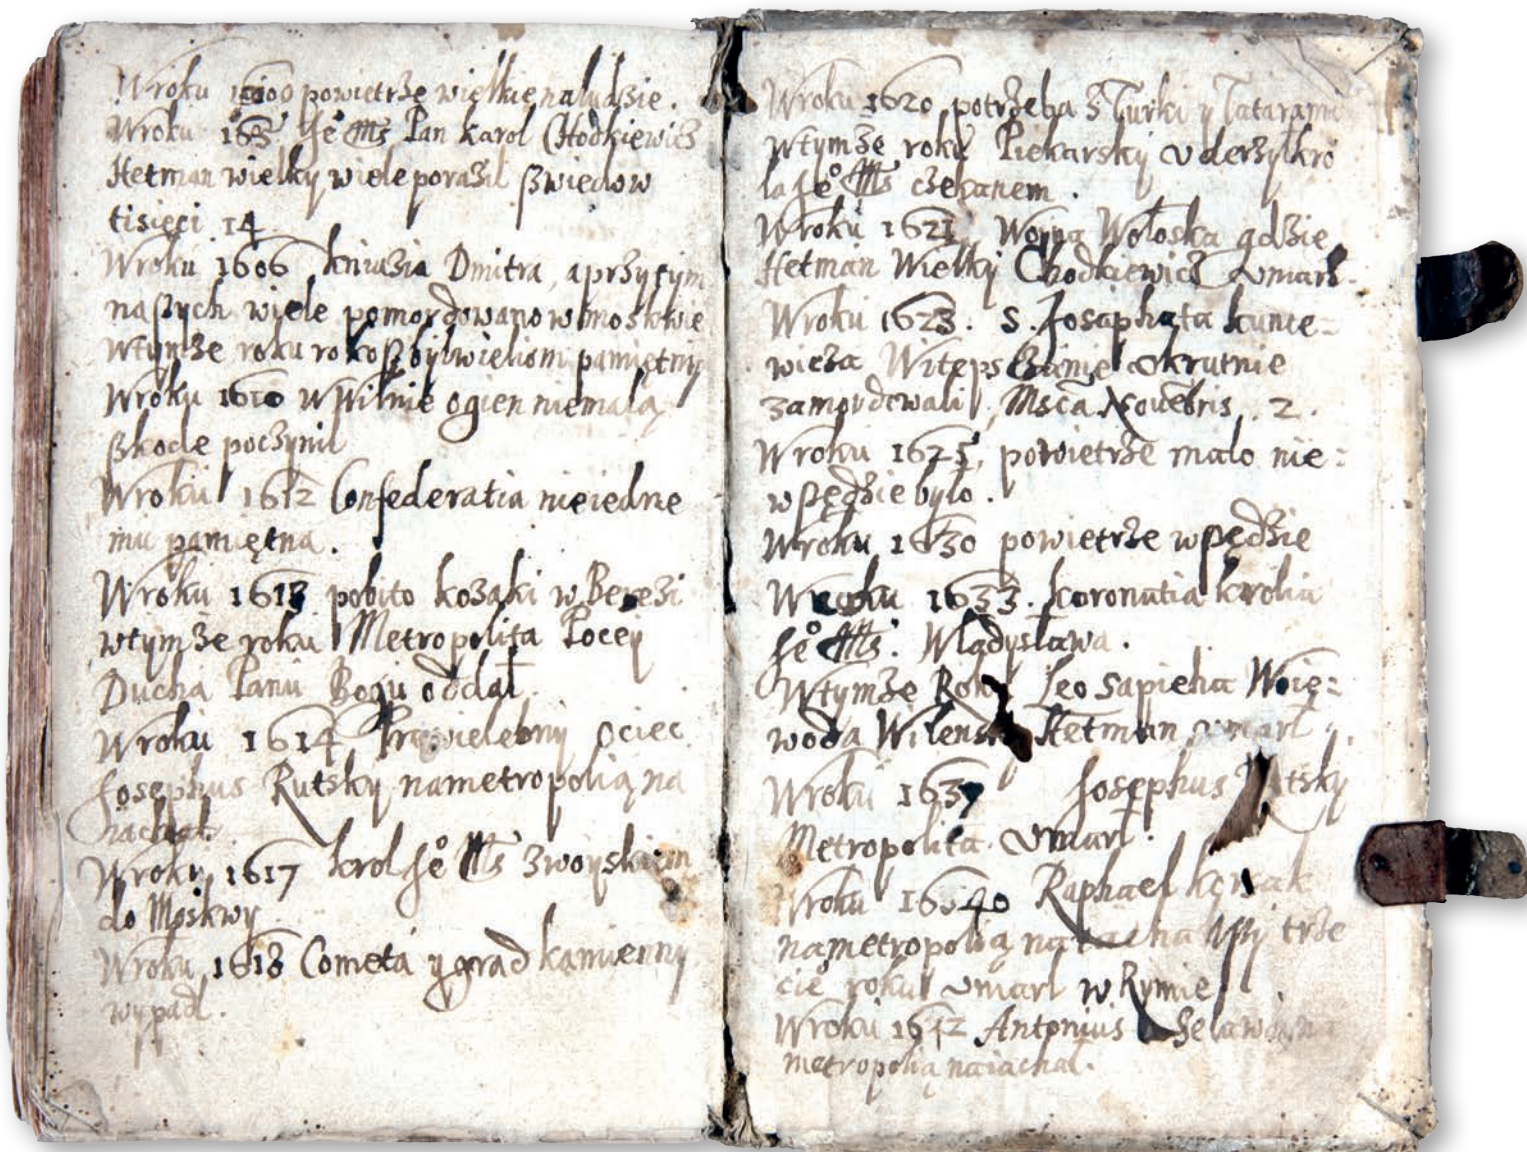 Wroku 1600 powietrze wielkie naludzie.
Wroku Jeº Ms Pan Karol Chodkiewicz
Hetman wielky wiele poraził szwiedow
tisięci 14
Wroku 1606 kniazia Dmitra, aprzytym
naszych wiele pomordowano w moskwie
wtymże roku rokosz był wieliom pamiętny
Wroku 1610 w Wilnie ogien niemałą
szkode poczynił
Wroku 1612 Confederatia nieiedne
mu pamiętna.
Wroku 1613 pobito kozaki w Berezi
wtymże roku Metropolita Pocey
Ducha Panu Bogu oddał.
Wroku 1614 Przewielebny ociec
Josephus Rutsky nametropolią na
Wroku 1617 krol Jeº Ms zwoyskiem
do Moskwy
Wroku 1618 Cometa y grad kamienny
wypadł.
Wroku 1620 potrzeba z Turki y Tatarami
wtymże roku Piekarsky uderzył kro
la Jeº Ms czekanem.
Wroku 1621 Woyna Wołoska gdzie
Hetman Wielky Chodkiewicz umarł.
Wroku 1623. S. Josaphata kunce=
wicza Witepszczanie okrutnie
zamordowali, Msca Nouebris. 2.
Wroku 1625, powietrze mało nie=
wszędzie było.
Wroku 1630 powietrze wszędzie
Wroku 1633. koronatia krolia
Jeº Ms. Władysława.
Wtymże Roku Leo Sapieha Woię=
woda Wilensky Hetman umarł.
Wroku 1637 Josephus Rutsky
Metropolita umarł.
Wroku 1640 Raphael korsak
nametropolią trze
cieº roku umarł w Rymie
Wroku 1642 Antonius Selawa na
metropolią naiachał.